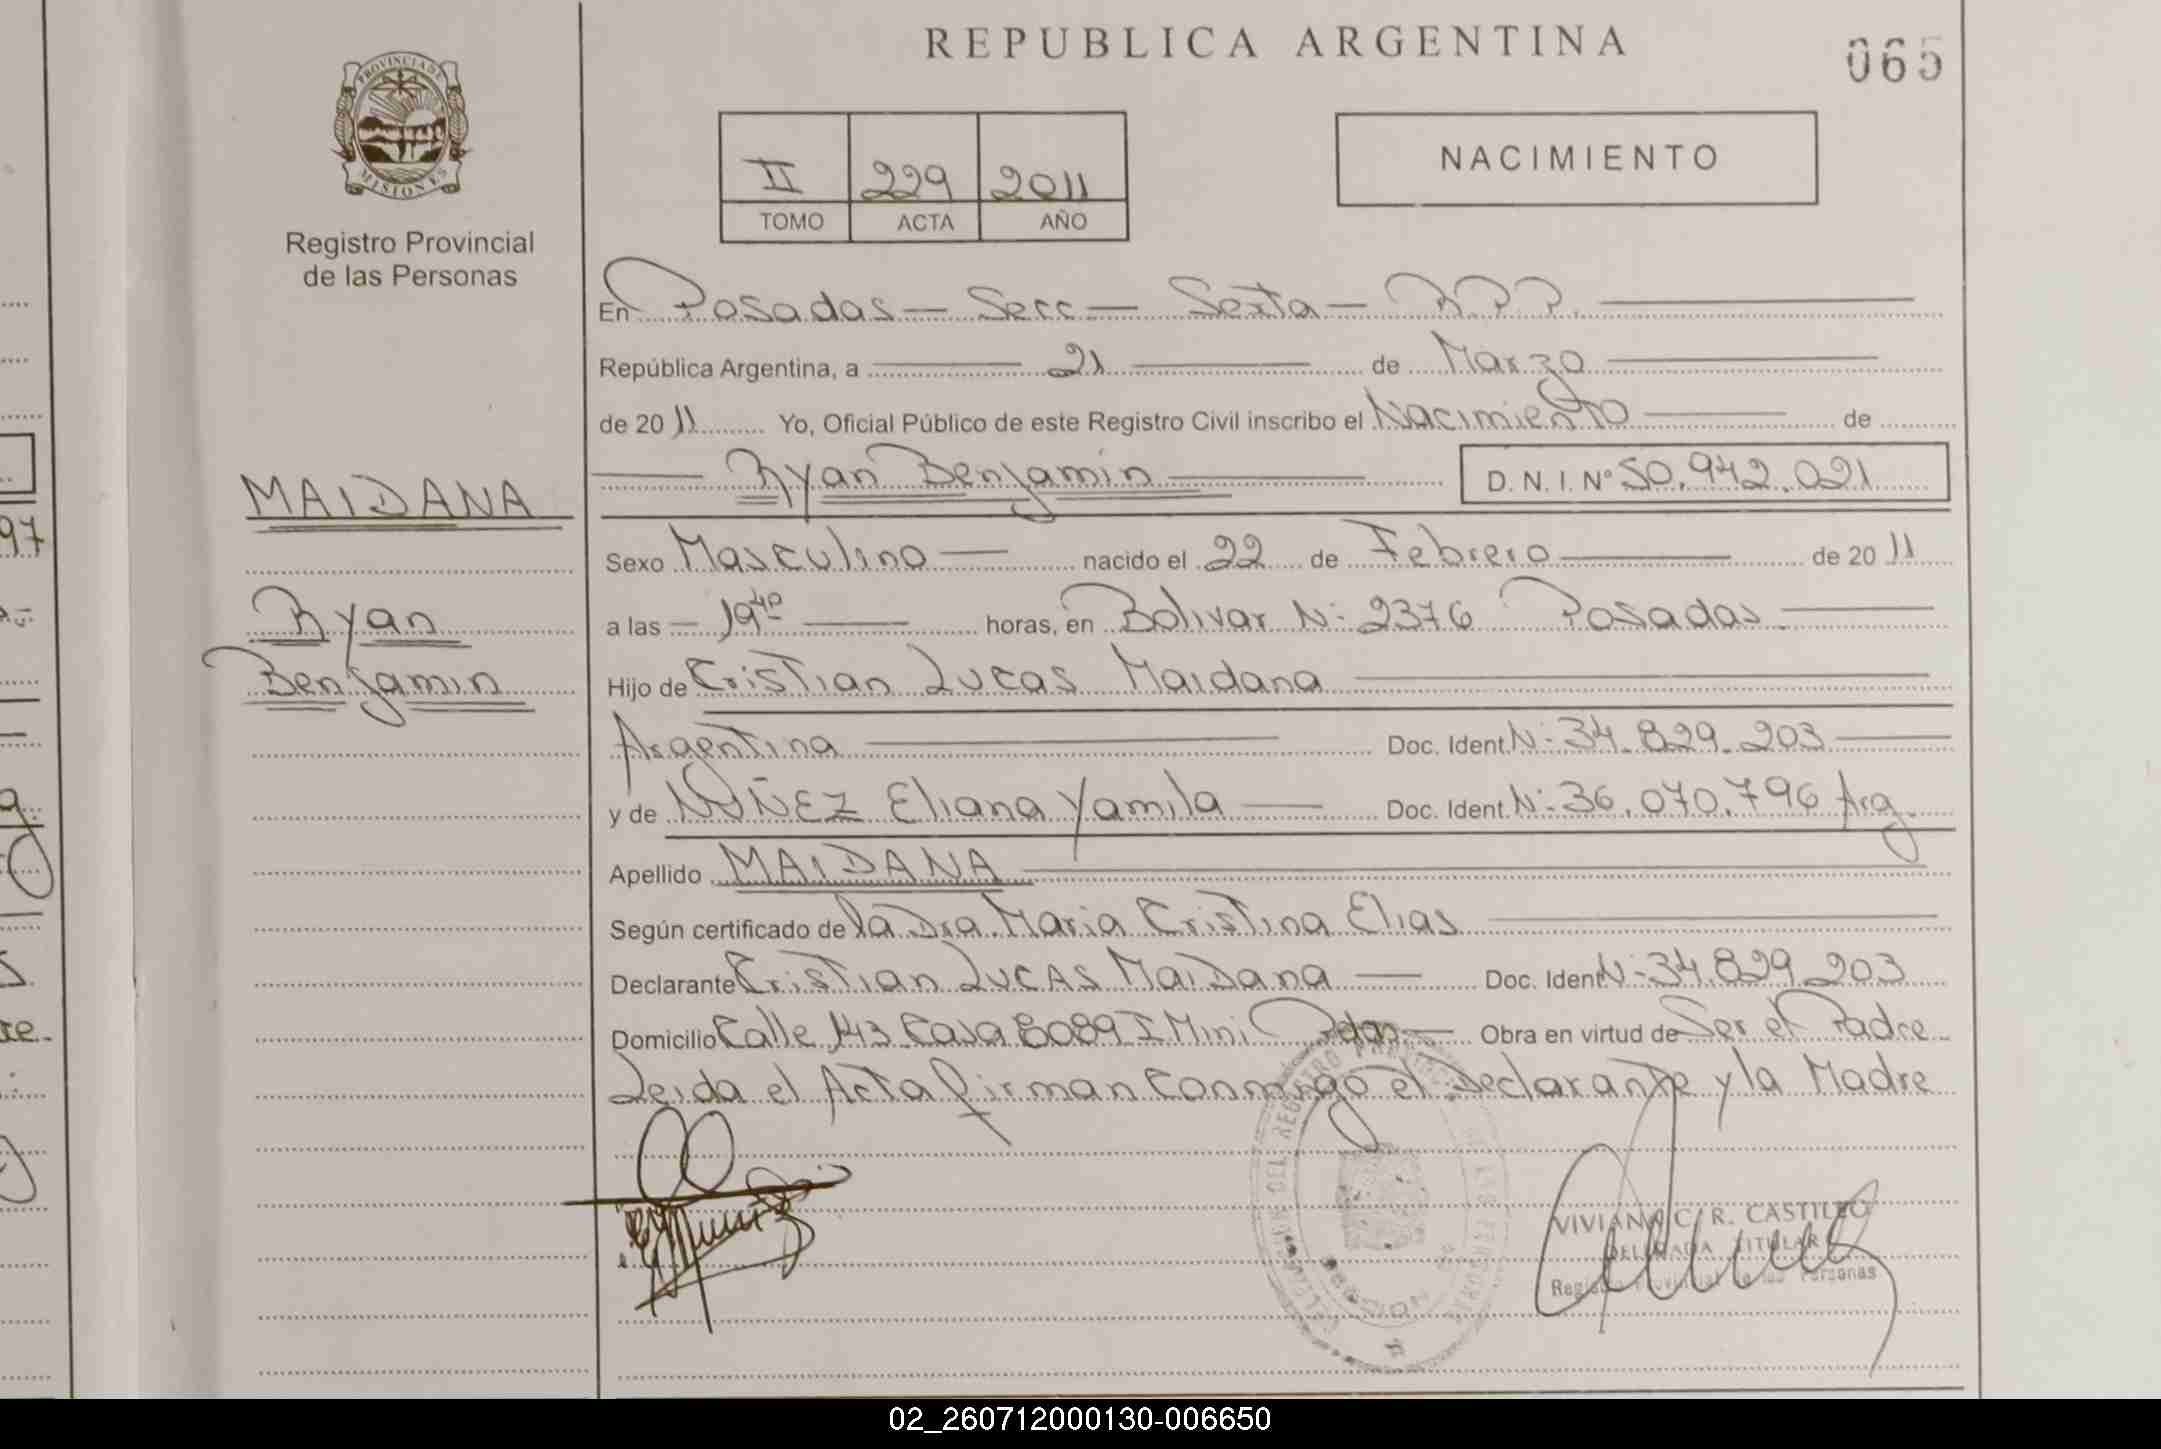 REPUBLICA ARGENTINA
065
PROVINCIA DE
MISIONES
Registro Provincial
de las Personas
II 229 2011
TOMO ACTA AÑO
NACIMIENTO
En Posadas — Secc — Sexta — R.P.P.
República Argentina, a 21 de Marzo
de 2011 Yo, Oficial Público de este Registro Civil inscribo el Nacimiento de
Ryan Benjamin D. N. I. Nº 50.942.021
MAIDANA
Ryan
Benjamin
Sexo Masculino nacido el 22 de Febrero de 2011
a las 19 40 horas, en Bolivar N: 2376 Posadas
Hijo de Cristian Lucas Maidana
Argentina Doc. Ident. N: 34.829.203
y de NUÑEZ Eliana Yamila Doc. Ident. N: 36.070.796 Arg.
Apellido MAIDANA
Según certificado de la Dra. Maria Cristina Elias
Declarante Cristian Lucas Maidana Doc. Ident N: 34.829.203
Domicilio Calle 143 Casa 8089 I. Mini Pdas. Obra en virtud de Ser el Padre
Leida el Acta firman conmigo el Declarante y la Madre
VIVIANA C. R. CASTILLO
DELEGADA TITULAR
Registro Provincial de las Personas
97
02_260712000130-006650